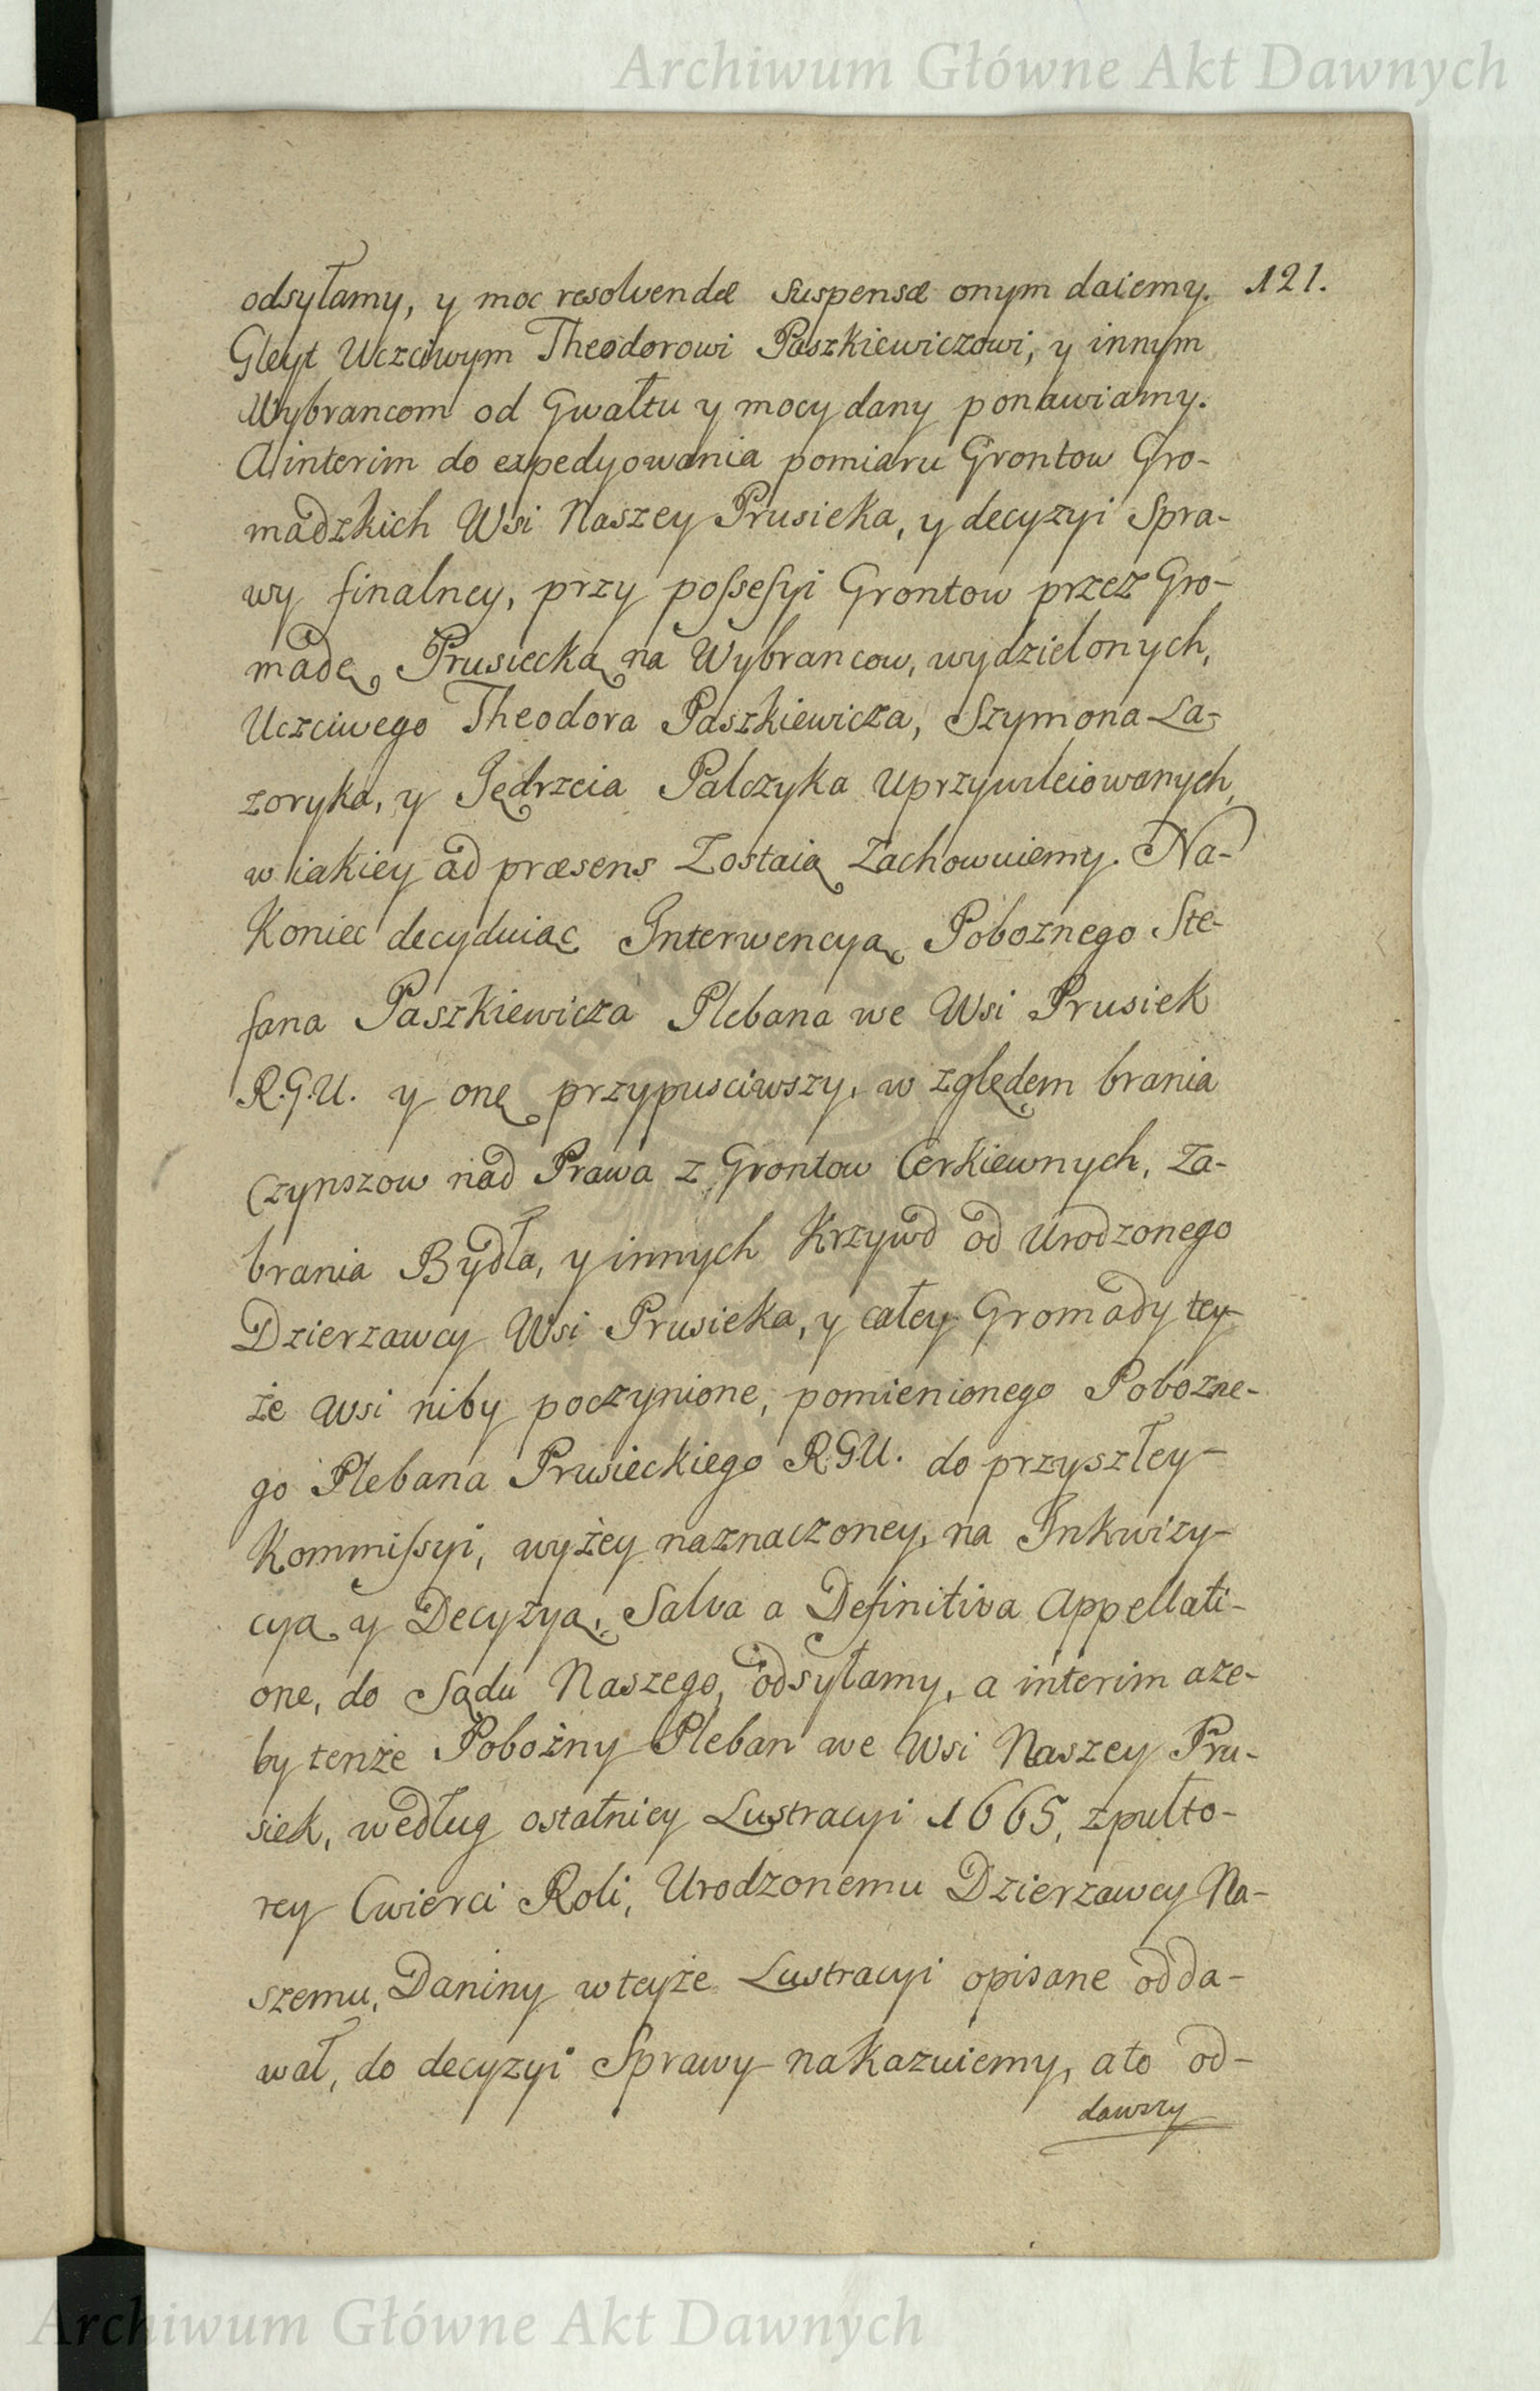 Archiwum Główne Akt Dawnych
odsyłamy, y moc resolvendæ suspensæ onym daiemy. 121.
Gleyt Uczciwym Theodorowi Paszkiewiczowi, y innym
Wybrancom od Gwałtu y mocy dany ponawiamy.
A interim do expedyowania pomiaru Grontow Gro-
madzkich Wsi Naszey Prusieka, y decyzyi Spra-
wy finalney, przy possesyi Grontow przez Gro-
madę Prusiecką na Wybrancow, wydzielonych,
Uczciwego Theodora Paszkiewicza, Szymona La-
zoryka, y Jędrzeia Palczyka Uprzywileiowanych,
w iakiey ad præsens Zostaią Zachowuiemy. Na-
koniec decyduiąc Interwencyą Poboznego Ste-
fana Paszkiewicza Plebana we Wsi Prusiek
R.G.U. y onę przypusciwszy, w zględem brania
Czynszow nad Prawa z Grontow Cerkiewnych, Za-
brania Bydła, y innych Krzywd od Urodzonego
Dzierzawcy Wsi Prusieka, y całey Gromady tey-
że Wsi niby poczynione, pomienionego Pobozne-
go Plebana Prusieckiego R.G.U. do przyszłey
Kommissyi, wyżey naznaczoney, na Inkwizy-
cyą y Decyzyą, Salva a Definitiva Appellati-
one, do Sądu Naszego, odsyłamy, a interim aze-
by tenże Pobożny Pleban we Wsi Naszey Pru-
siek, według ostatniey Lustracyi 1665, z pułto-
rey Cwierci Roli, Urodzonemu Dzierzawcy Na-
szemu, Daniny w teyże Lustracyi opisane odda-
wał, do decyzyi Sprawy nakazuiemy, a to od-
dawszy
Archiwum Główne Akt Dawnych